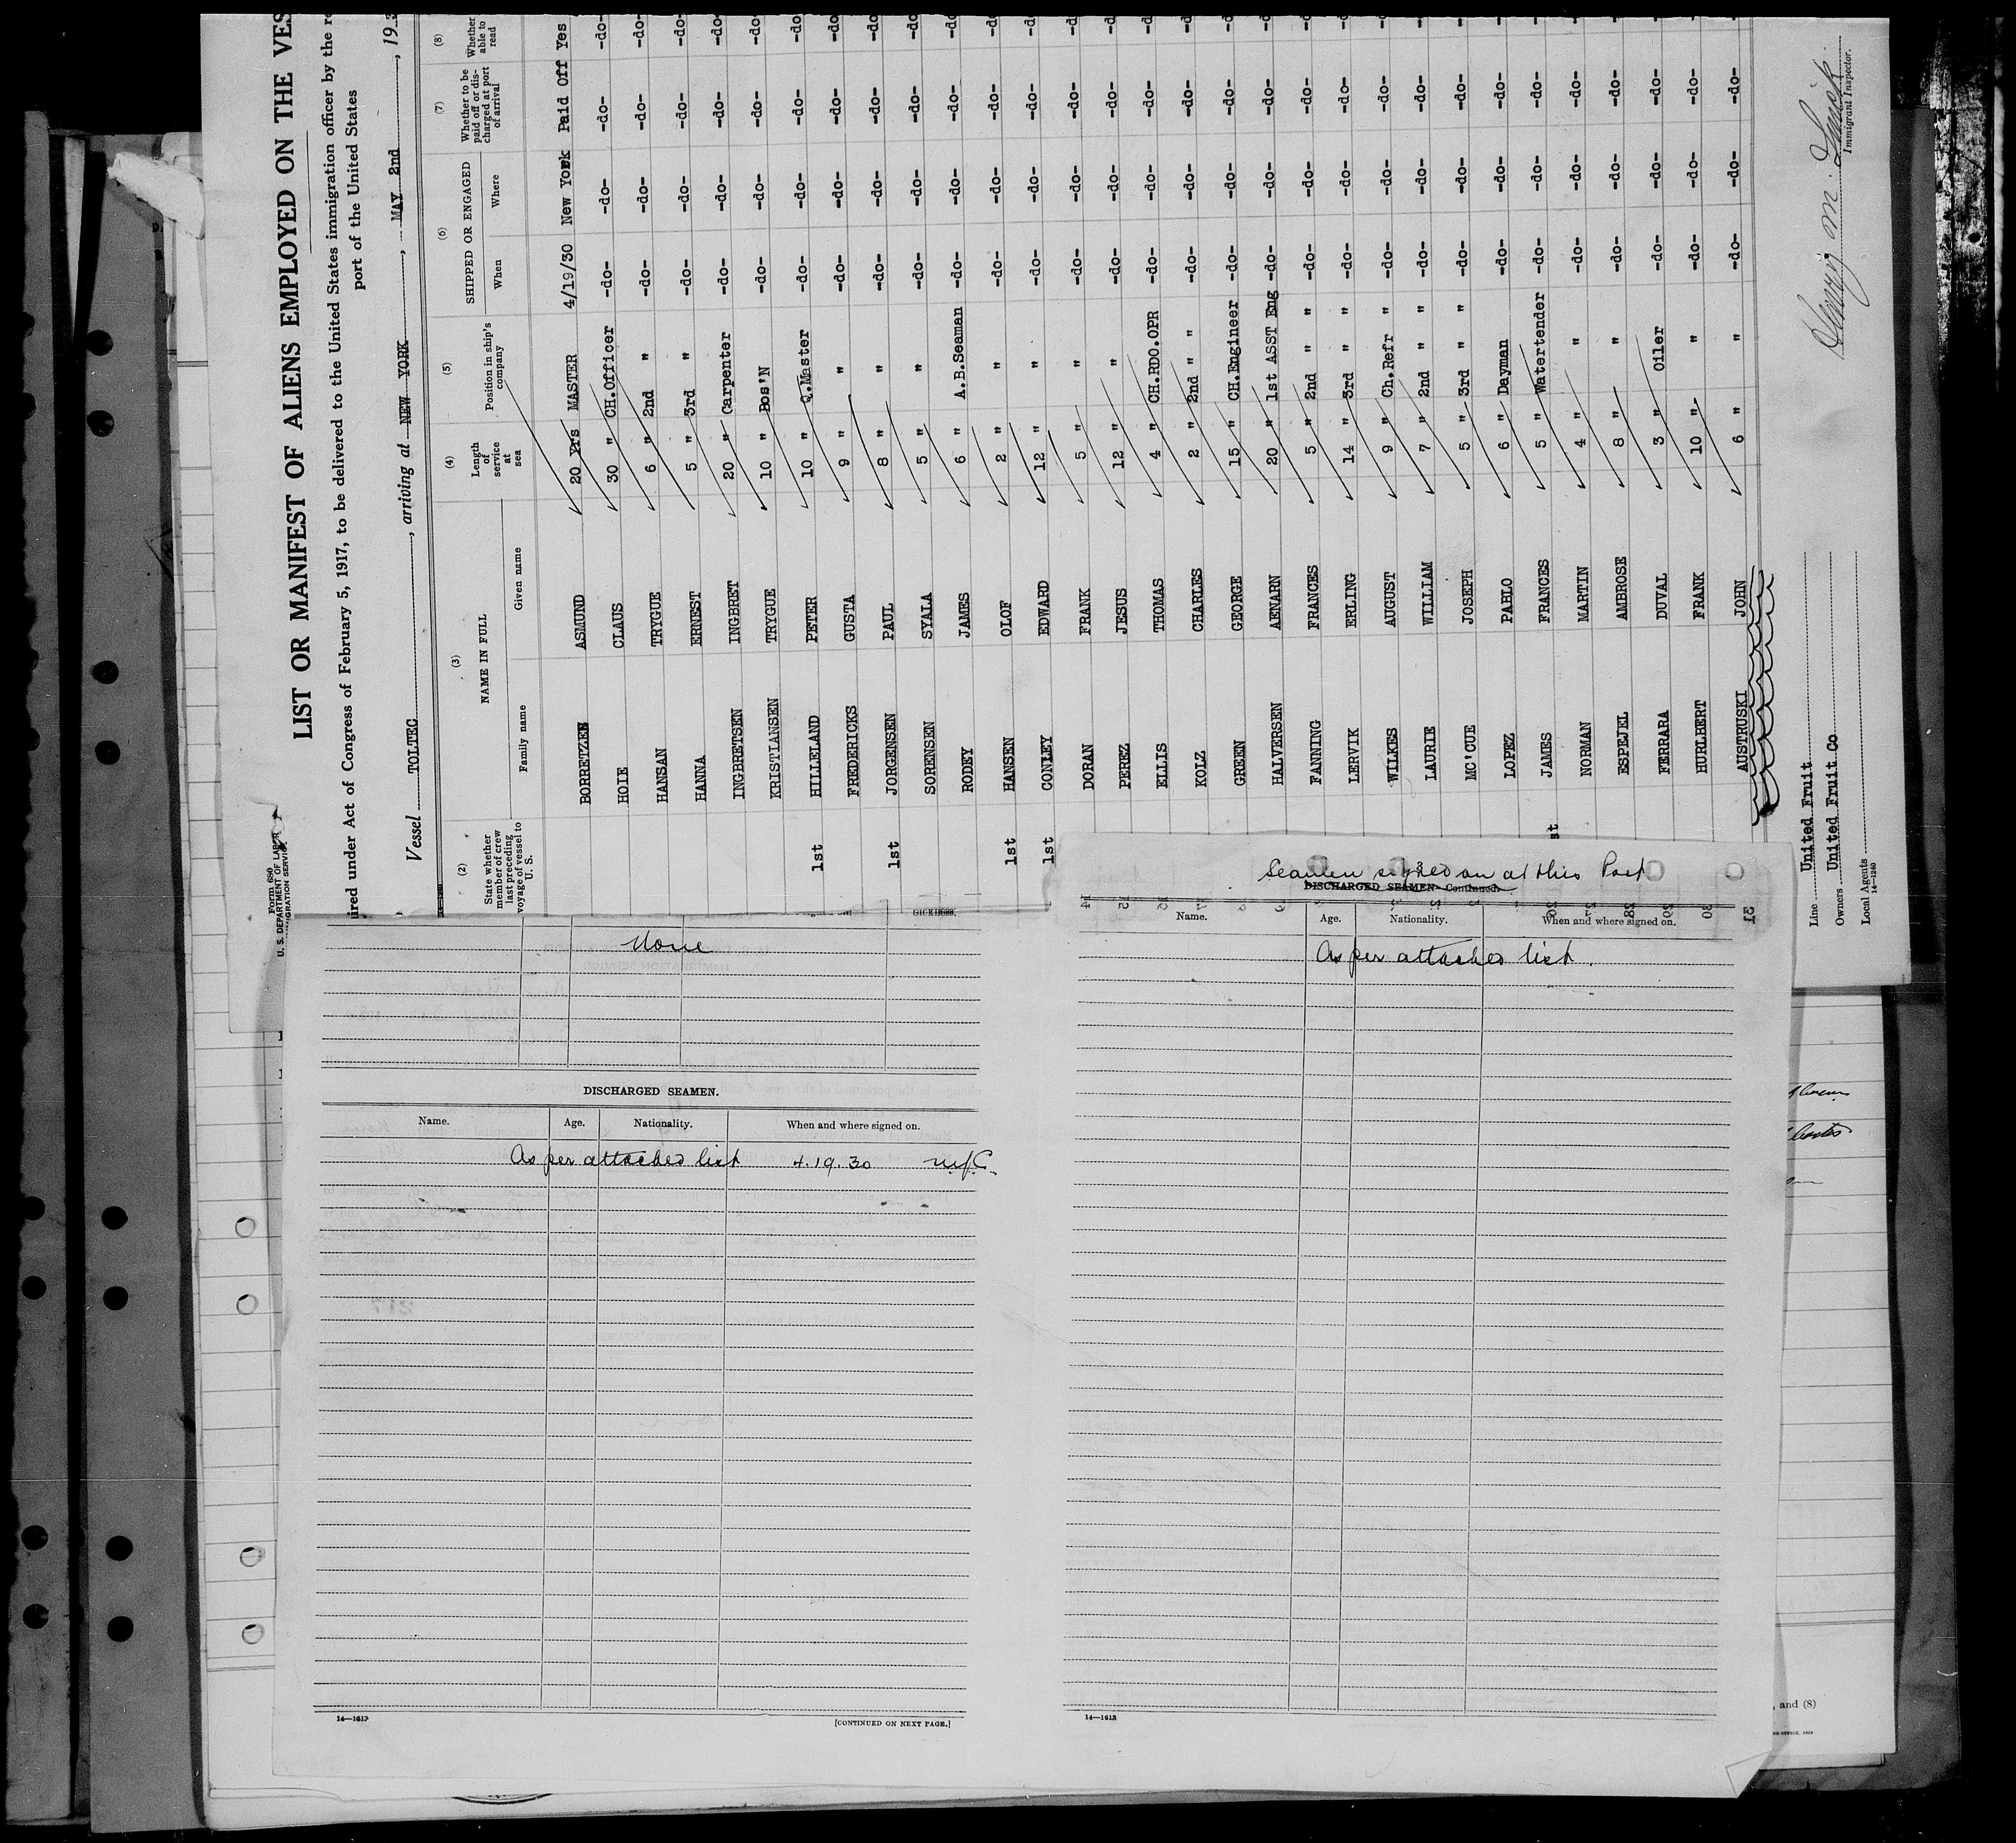 Form 680
U. S. DEPARTMENT OF LABOR
IMMIGRATION SERVICE
LIST OR MANIFEST OF ALIENS EMPLOYED ON THE VES
ired under Act of Congress of February 5, 1917, to be delivered to the United States immigration officer by the re
port of the United States
Vessel TOLTEC, arriving at NEW YORK, MAY 2nd, 19
(2) (3) (4) (5) (6) (7) (8)
State whether member of crew last preceding voyage of vessel to U. S. NAME IN FULL Length of service at sea Position in ship's company SHIPPED OR ENGAGED Whether to be paid off or discharged at port of arrival Whether able to read
Family name Given name When Where
BORRETZEN ASMUND 20 Yrs MASTER 4/19/30 New York Paid Off Yes
HOIE CLAUS 30 " CH.Officer -do- -do- -do- -do-
HANSAN TRYGUE 6 " 2nd " -do- -do- -do- -do-
HANNA ERNEST 5 " 3rd " -do- -do- -do- -do-
INGBRETSEN INGBRET 20 " Carpenter -do- -do- -do- -do-
KRISTIANSEN TRYGUE 10 " Bos'N -do- -do- -do- -do-
1st HILLELAND PETER 10 " Q.Master -do- -do- -do- -do-
FREDERICKS GUSTA 9 " " -do- -do- -do- -do-
1st JORGENSEN PAUL 8 " " -do- -do- -do- -do-
SORENSEN SYALA 5 " " -do- -do- -do- -do-
RODEY JAMES 6 " A.B.Seaman -do- -do- -do- -do-
1st HANSEN OLOF 2 " " -do- -do- -do- -do-
1st CONLEY EDWARD 12 " " -do- -do- -do- -do-
DORAN FRANK 5 " " -do- -do- -do- -do-
PEREZ JESUS 12 " " -do- -do- -do- -do-
ELLIS THOMAS 4 " CH.RDO.OPR -do- -do- -do- -do-
KOLZ CHARLES 2 " 2nd " " -do- -do- -do- -do-
GREEN GEORGE 15 " CH.Engineer -do- -do- -do- -do-
HALVERSEN AENARN 20 " 1st ASST Eng -do- -do- -do- -do-
FANNING FRANCES 5 " 2nd " " -do- -do- -do- -do-
LERVIK ERLING 14 " 3rd " " -do- -do- -do- -do-
WILKES AUGUST 9 " Ch.Refr " -do- -do- -do- -do-
LAURIE WILLIAM 7 " 2nd " " -do- -do- -do- -do-
MC'CUE JOSEPH 5 " 3rd " " -do- -do- -do- -do-
LOPEZ PABLO 6 " Dayman -do- -do- -do- -do-
st JAMES FRANCES 5 " Watertender -do- -do- -do- -do-
NORMAN MARTIN 4 " " -do- -do- -do- -do-
ESPEJEL AMBROSE 8 " " -do- -do- -do- -do-
FERRARA DUVAL 3 " Oiler -do- -do- -do- -do-
HURLBERT FRANK 10 " " -do- -do- -do- -do-
AUSTRUSKI JOHN 6 " " -do- -do- -do- -do-
Line United Fruit
Owners United Fruit Co
Local Agents
14-1240
Henry M.
Immigrant Inspector.
None
DISCHARGED SEAMEN.
Name. Age. Nationality. When and where signed on.
As per attached list 4.19.30 N.Y.C.
14—1613
[CONTINUED ON NEXT PAGE.]
3
Seamen signed on at this Port
DISCHARGED SEAMEN—Continued.
Name. Age. Nationality. When and where signed on.
As per attached list.
14—1613
, and (8)